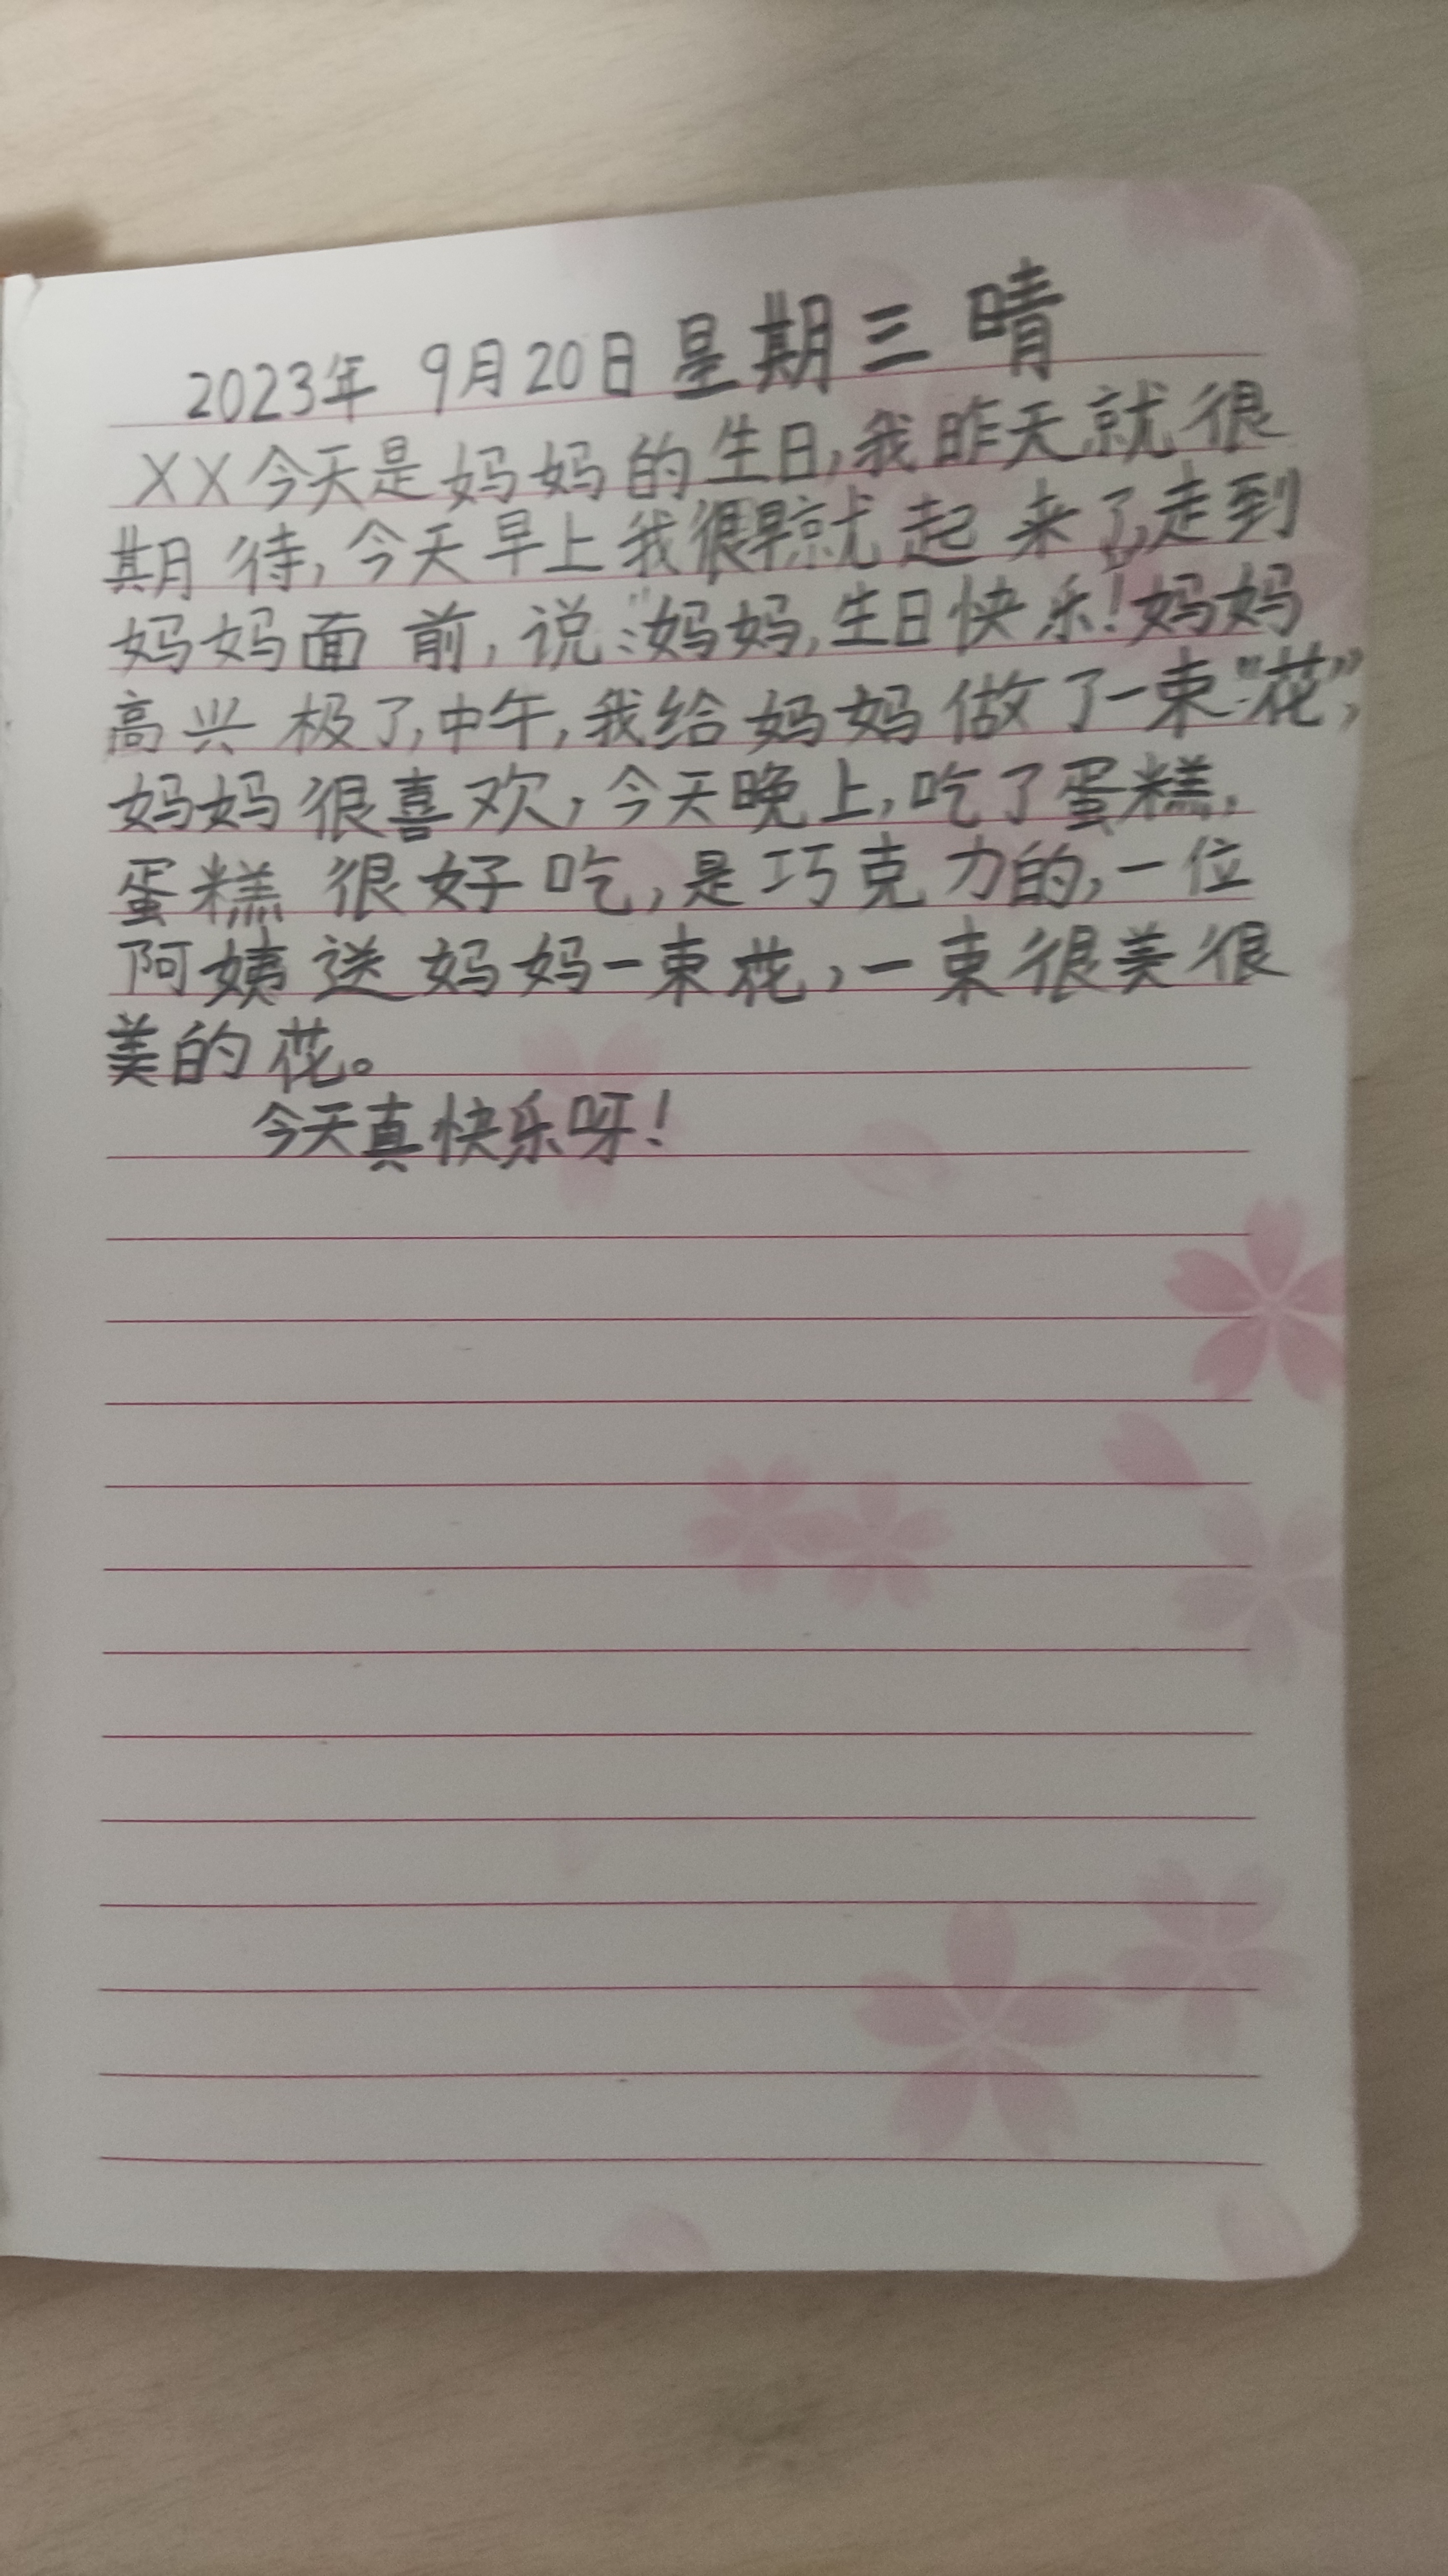 2023年 9月20日 星期三 晴
XX今天是妈妈的生日,我昨天就很
期待,今天早上我很早就起来了,走到
妈妈面前,说:"妈妈,生日快乐!妈妈
高兴极了,中午,我给妈妈做了一束"花",
妈妈很喜欢,今天晚上,吃了蛋糕,
蛋糕很好吃,是巧克力的,一位
阿姨送妈妈一束花,一束很美很
美的花。
今天真快乐呀!